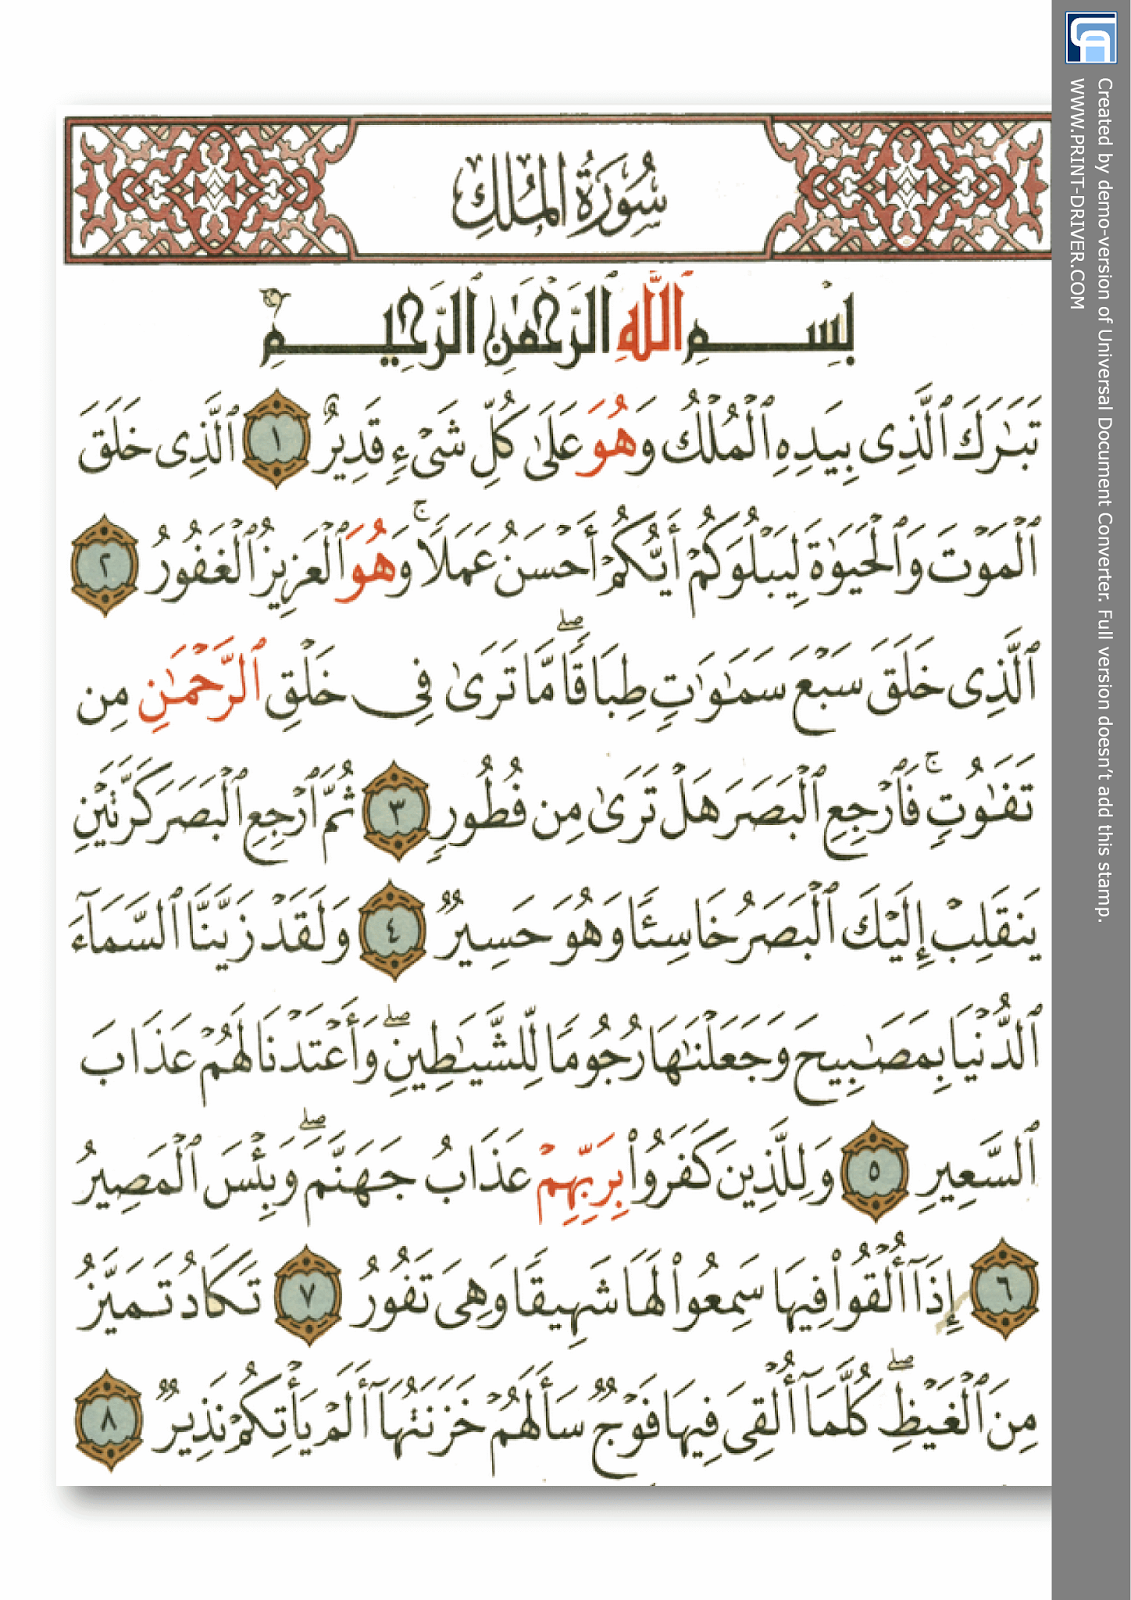 سُورَةُ المُلْكِ
بِسْمِ ٱللَّهِ ٱلرَّحْمَٰنِ ٱلرَّحِيمِ
تَبَٰرَكَ ٱلَّذِى بِيَدِهِ ٱلْمُلْكُ وَهُوَ عَلَىٰ كُلِّ شَىْءٍ قَدِيرٌ ١ ٱلَّذِى خَلَقَ
ٱلْمَوْتَ وَٱلْحَيَوٰةَ لِيَبْلُوَكُمْ أَيُّكُمْ أَحْسَنُ عَمَلًا ۚ وَهُوَ ٱلْعَزِيزُ ٱلْغَفُورُ ٢
ٱلَّذِى خَلَقَ سَبْعَ سَمَٰوَٰتٍ طِبَاقًا ۖ مَّا تَرَىٰ فِى خَلْقِ ٱلرَّحْمَٰنِ مِن
تَفَٰوُتٍ ۖ فَٱرْجِعِ ٱلْبَصَرَ هَلْ تَرَىٰ مِن فُطُورٍ ٣ ثُمَّ ٱرْجِعِ ٱلْبَصَرَ كَرَّتَيْنِ
يَنقَلِبْ إِلَيْكَ ٱلْبَصَرُ خَاسِئًا وَهُوَ حَسِيرٌ ٤ وَلَقَدْ زَيَّنَّا ٱلسَّمَآءَ
ٱلدُّنْيَا بِمَصَٰبِيحَ وَجَعَلْنَٰهَا رُجُومًا لِّلشَّيَٰطِينِ ۖ وَأَعْتَدْنَا لَهُمْ عَذَابَ
ٱلسَّعِيرِ ٥ وَلِلَّذِينَ كَفَرُوا۟ بِرَبِّهِمْ عَذَابُ جَهَنَّمَ ۖ وَبِئْسَ ٱلْمَصِيرُ
٦ إِذَآ أُلْقُوا۟ فِيهَا سَمِعُوا۟ لَهَا شَهِيقًا وَهِىَ تَفُورُ ٧ تَكَادُ تَمَيَّزُ
مِنَ ٱلْغَيْظِ ۖ كُلَّمَآ أُلْقِىَ فِيهَا فَوْجٌ سَأَلَهُمْ خَزَنَتُهَآ أَلَمْ يَأْتِكُمْ نَذِيرٌ ٨
Created by demo-version of Universal Document Converter. Full version doesn't add this stamp.
WWW.PRINT-DRIVER.COM